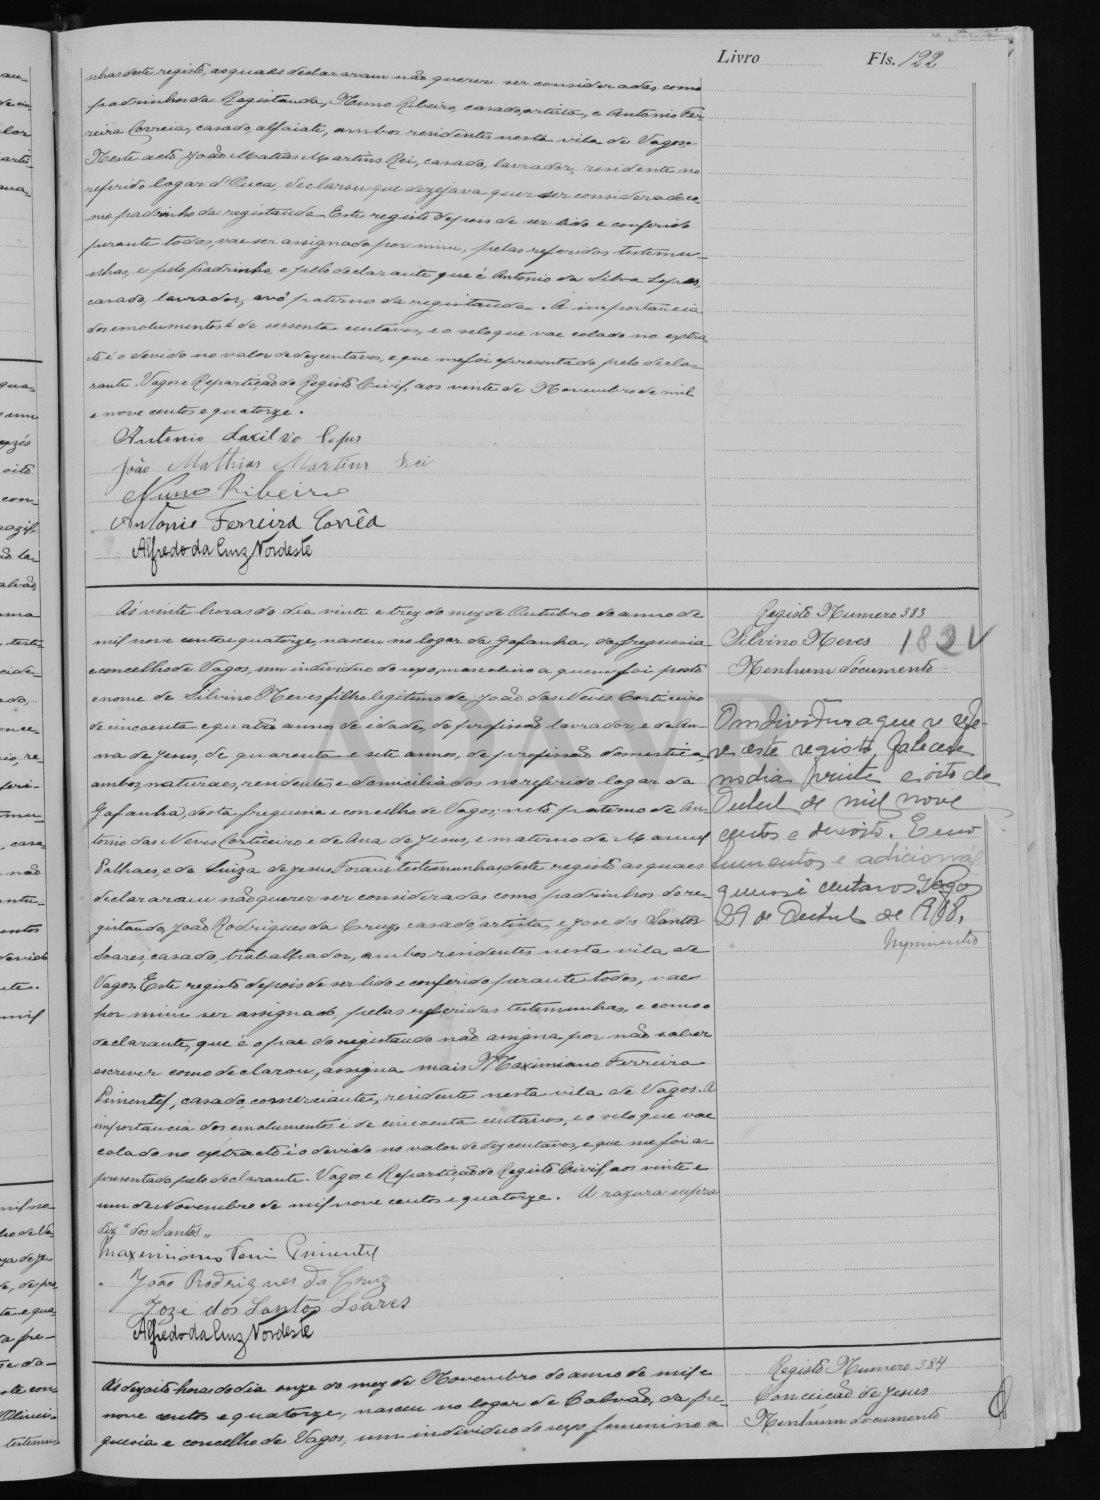 Livro Fls. 122
nhas deste registo, as quaes declararam não querer ser consideradas como
padrinhos da Registanda, Nuno Ribeiro, casado, artista, e Antonio Fer
reira Correia, casado, alfaiate, ambos residentes nesta vila de Vagos.
Neste acto João Matias Martins Rei, casado, lavrador, residente no
referido logar d'Ouca, declarou que dezejava quer ser considerado co
mo padrinho da registanda. Este registo depois de ser lido e conferido
perante todos, vae ser assignado por mim, pelas referidas testemu-
nhas, e pelo padrinho, e pelo declarante que é Antonio da Silva Lopes,
casado, lavrador, avô paterno da registanda. A importancia
dos emolumentos é de sessenta centavos, e o selo que vae colado no extra
cto é o devido no valor de dez centavos, e que me foi apresentado pelo decla-
rante. Vagos e Repartição do Registo Civil, aos vinte de Novembro de mil
e nove centos e quatorze.
Antonio da Lopes
João Mathias Martins Rei
Nuno Ribeiro
Antonio Ferreira Corrêa
Alfredo da Cruz Nordeste
Registo Numero 383
Silvino Neves 1824
Nenhum documento
Ás vinte horas do dia vinte e trez do mez de Outubro do anno de
mil nove centos e quatorze, nasceu no logar da Gafanha, da freguesia
e concelho de Vagos, um individuo do sexo masculino a quem foi posto
o nome de Silvino Neves filho legitimo de João das Neves Corticeiro
de cincoenta e quatro annos de idade, de profissão lavrador, e de An-
na de Jesus, de quarenta e sete annos, de profissão domestica,
ambos naturaes, residentes e domiciliados no referido logar da
Gafanha, desta freguesia e concelho de Vagos; neto paterno de An
tonio das Neves Corticeiro e de Ana de Jesus, e materno de Manuel
Palhaes, e de Luiza de Jesus. Foram testemunhas deste registo as quaes
declararam não querer ser consideradas como padrinhos do re-
gistando, João Rodrigues da Cruz, casado, artista, e Jose dos Santos
Soares, casado, trabalhador, ambos residentes nesta vila de
Vagos. Este registo depois de ser lido e conferido perante todos, vae
por mim ser assignado, pelas referidas testemunhas, e como o
declarante, que é o pae do registando não assigna por não saber
escrever como declarou, assigna mais Maximiano Ferreira
Pimentel, casado, comerciante, residente nesta vila de Vagos. A
importancia dos emolumentos é de cincoenta centavos, e o selo que vae
colado no extracto é o devido no valor de dez centavos, e que me foi a-
presentado pelo declarante. Vagos e Repartição do Registo Civil, aos vinte e
um de Novembro de mil nove centos e quatorze. A razura supra
diz "dos Santos"
Maximiano Pimentel
João Rodrigues da Cruz
Joze dos Santos Soares
Alfredo da Cruz Nordeste
O individuo a que se refe-
re este registo, faleceu
no dia vinte e oito de
de mil nove
centos e dezoito. Emo
lumentos e adicional
quinze centavos. Vagos
29 de de 1918.
Registo Numero 384
Conceição de Jesus
Nenhum documento
Ás dezoito horas do dia onze do mez de Novembro do anno de mil e
nove centos e quatorze, nasceu no logar de Calvão, da fre-
guesia e concelho de Vagos, um individuo do sexo feminino a